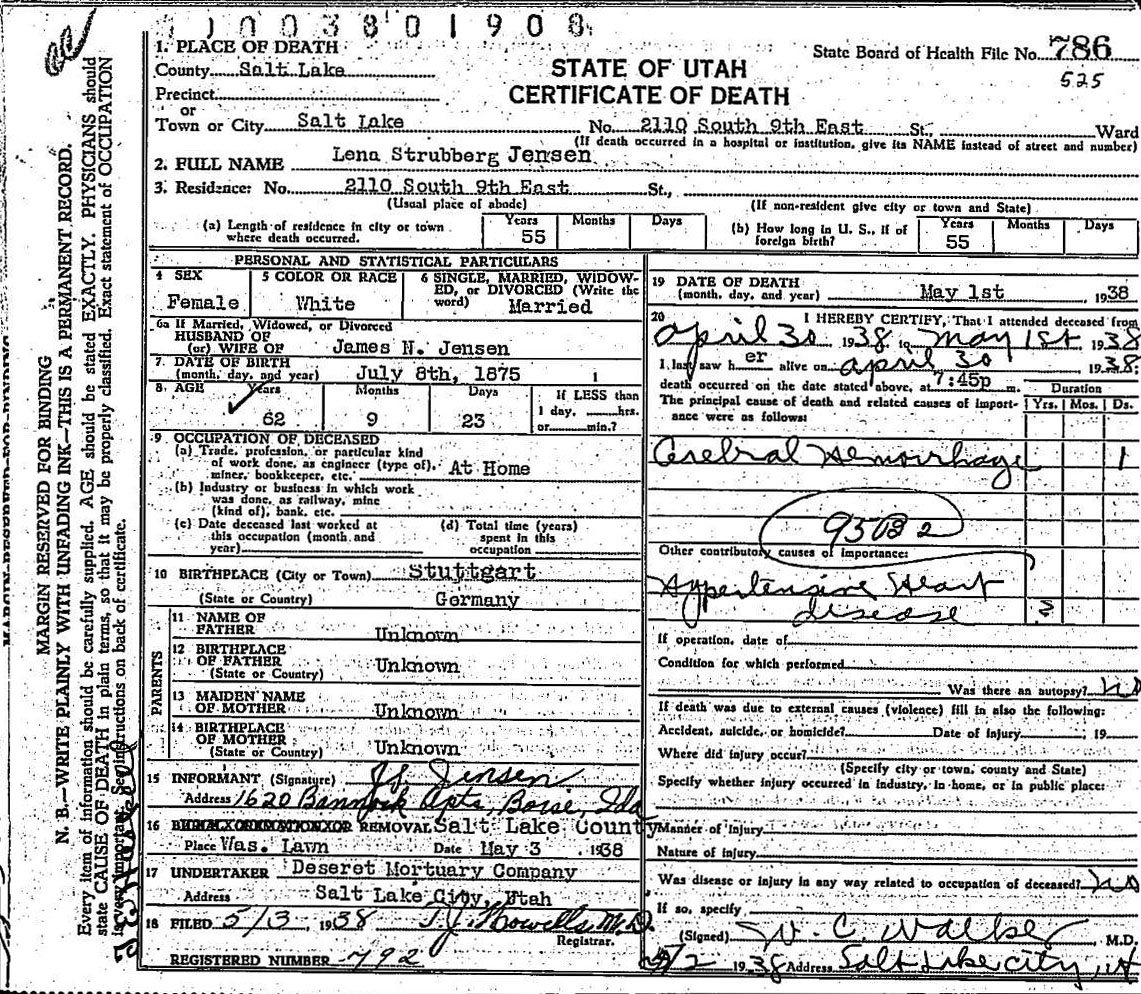 1003801908
1. PLACE OF DEATH
County Salt Lake
Precinct
or
Town or City Salt Lake No. 2110 South 9th East St., Ward
(If death occurred in a hospital or institution, give its NAME instead of street and number)
State Board of Health File No. 786
525
STATE OF UTAH
CERTIFICATE OF DEATH
2. FULL NAME Lena Strubberg Jensen
3. Residence: No. 2110 South 9th East St.,
(Usual place of abode) (If non-resident give city or town and State)
(a) Length of residence in city or town where death occurred. Years 55 Months Days
(b) How long in U. S., if of foreign birth? Years 55 Months Days
PERSONAL AND STATISTICAL PARTICULARS
4 SEX Female
5 COLOR OR RACE White
6 SINGLE, MARRIED, WIDOWED, or DIVORCED (Write the word) Married
6a If Married, Widowed, or Divorced
HUSBAND OF
(or) WIFE OF James N. Jensen
7 DATE OF BIRTH
(month, day, and year) July 8th, 1875
8 AGE Years 62 Months 9 Days 23
If LESS than
1 day, hrs.
or min.?
9 OCCUPATION OF DECEASED
(a) Trade, profession, or particular kind
of work done, as engineer (type of), At Home
miner, bookkeeper, etc.
(b) Industry or business in which work
was done, as railway, mine
(kind of), bank, etc.
(c) Date deceased last worked at
this occupation (month and
year)
(d) Total time (years)
spent in this
occupation
10 BIRTHPLACE (City or Town) Stuttgart
(State or Country) Germany
PARENTS
11 NAME OF
FATHER Unknown
12 BIRTHPLACE
OF FATHER Unknown
(State or Country)
13 MAIDEN NAME
OF MOTHER Unknown
14 BIRTHPLACE
OF MOTHER
(State or Country) Unknown
15 INFORMANT (Signature) Jensen
Address 1620 Bannock Apts, Boise, Ida
16 REMOVAL Salt Lake County
Place Was. Lawn Date May 3 1938
17 UNDERTAKER Deseret Mortuary Company
Address Salt Lake City, Utah
18 FILED 5/3 1938 T. J. Howells, M.D.
Registrar.
REGISTERED NUMBER 792
19 DATE OF DEATH
(month, day, and year) May 1st 1938
20 I HEREBY CERTIFY, That I attended deceased from
April 30 1938 to May 1st 1938
I last saw her alive on April 30 1938;
death occurred on the date stated above, at 7:45p m.
The principal cause of death and related causes of importance were as follows:
Duration
Yrs. Mos. Ds.
Cerebral Hemorrhage 1
Other contributory causes of importance:
Hypertensive Heart
disease
If operation, date of
Condition for which performed
Was there an autopsy? No
If death was due to external causes (violence) fill in also the following:
Accident, suicide, or homicide? Date of injury ; 19
Where did injury occur?
(Specify city or town, county and State)
Specify whether injury occurred in industry, in home, or in public place:
Manner of injury
Nature of injury
Was disease or injury in any way related to occupation of deceased? No
If so, specify
(Signed) W. C. Walker M.D.
5/2 1938 Address Salt Lake City, Ut
MARGIN RESERVED FOR BINDING
N. B.—WRITE PLAINLY WITH UNFADING INK—THIS IS A PERMANENT RECORD.
Every item of information should be carefully supplied. AGE should be stated EXACTLY. PHYSICIANS should
state CAUSE OF DEATH in plain terms, so that it may be properly classified. Exact statement of OCCUPATION
is very important. See instructions on back of certificate.